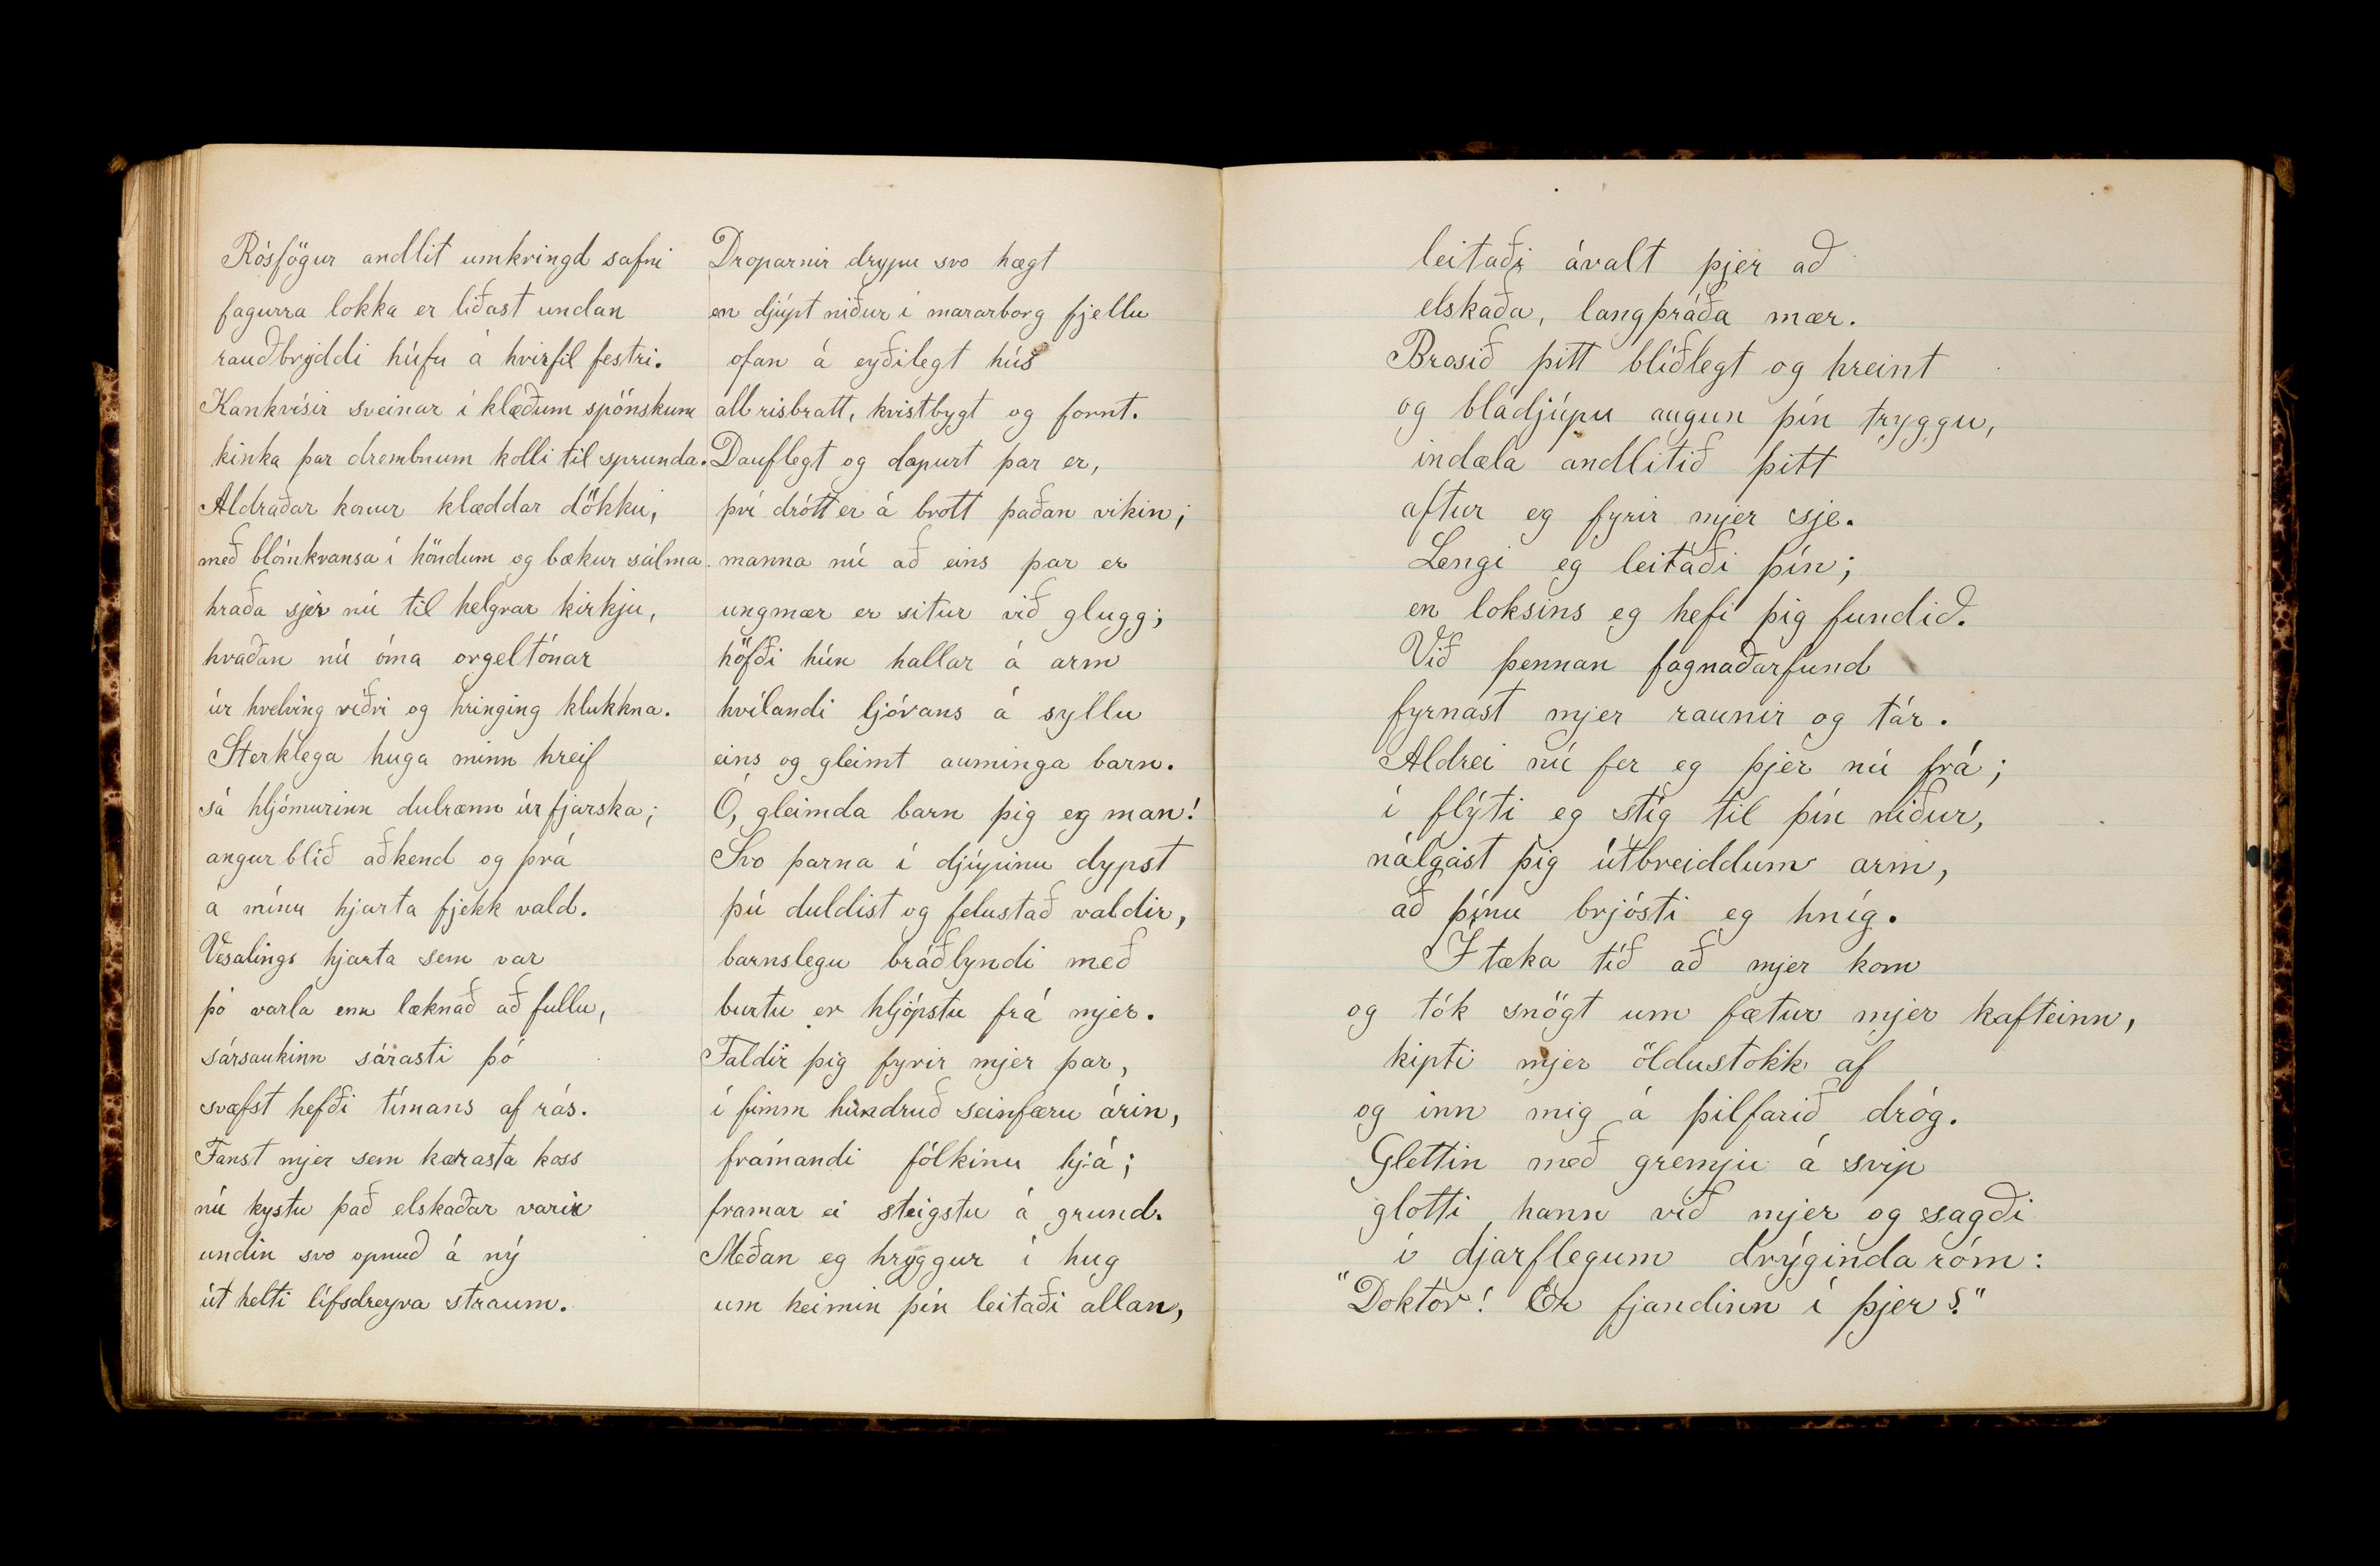 Rósfögur andlit umkringd safni
fagurra lokka er liðast undan
rauðbryddi húfu á hvirfil festri.
Kankvísir sveinar í klæðum spönskum
kinka þar drembnum kolli til sprunda.
Aldraðar konur klæddar dökku,
með blómkransa í höndum og bækur sálma
hraða sjer nú til helgrar kirkju,
hvaðan nú óma orgeltónar
úr hvelving víðri og hringing klukkna.
Sterklega huga minn hreif
sá hljómurinn dulrænn úr fjarska;
angurblíð aðkend og þrá
á mínu hjarta fjekk vald.
Vesalings hjarta sem var
þó varla enn læknað að fullu,
sársaukinn sárasti þó
svæfst hefði tímans af rás.
Fanst mjer sem kærasta koss
nú kystu það elskaðar varir
undin svo opnuð á ný
út helti lífsdreyra straum.
Droparnir drypu svo hægt
en djúpt niður í mararborg fjellu
ofan á eyðilegt hús
all risbratt, kvistbygt og fornt.
Dauflegt og dapurt þar er,
því drótt er á brott þaðan vikin;
manna nú að eins þar er
ungmær er situr við glugg;
höfði hún hallar á arm
hvílandi ljórans á syllu
eins og gleimt auminga barn.
Ó, gleimda barn þig eg man!
Svo þarna í djúpinu dypst
þú duldist og felustað valdir,
barnslegu bráðlyndi með
burtu er hljópstu frá mjer.
Faldir þig fyrir mjer þar,
í fimm hundruð seinfæru árin,
frámandi fólkinu hjá;
framar ei steigstu á grund.
Meðan eg hryggur í hug
um heimin þín leitaði allan,
leitaði ávalt þjer að
elskaða, langþráða mær.
Brosið þitt blíðlegt og hreint
og bládjúpu augun þín tryggu,
indæla andlitið þitt
aftur eg fyrir mjer sje.
Lengi eg leitaði þín;
en loksins eg hefi þig fundið.
Við þennan fagnaðarfund
fyrnast mjer raunir og tár.
Aldrei nú fer eg þjer nú frá;
í flýti eg stíg til þín niður,
nálgast þig útbreiddum arm,
að þínu brjósti eg hníg.
Í tæka tíð að mjer kom
og tók snögt um fætur mjer kafteinn,
kipti mjer öldustokk af
og inn mig á þilfarið dróg.
Glettin með gremju á svip
glotti hann við mjer og sagði
í djarflegum drýginda róm:
"Doktor! Er fjandinn í þjer?"